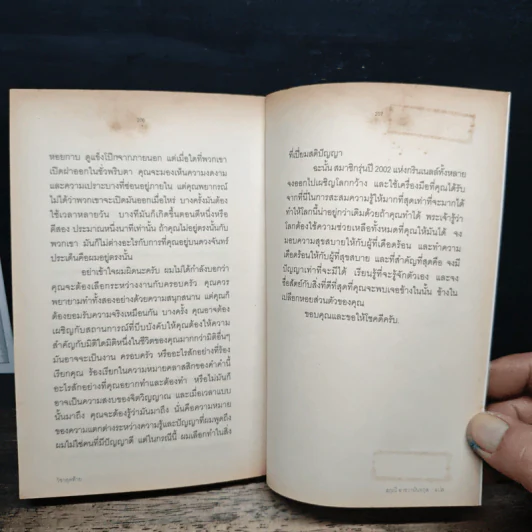 หอยกาบ ดูแข็งโป๊กจากภายนอก แต่เมื่อใดที่พวกเขา
เปิดฝาออกในชั่วพริบตา คุณจะมองเห็นความงดงาม
และความเปราะบางที่ซ่อนอยู่ภายใน แต่คุณพยากรณ์
ไม่ได้ว่าพวกเขาจะเปิดมันออกเมื่อไหร่ บางครั้งมันต้อง
ใช้เวลาหลายวัน บางทีมันก็เกิดขึ้นตอนตีหนึ่งหรือ
ตีสอง ประมาณหนึ่งนาทีเท่านั้น ถ้าคุณไม่อยู่ตรงนั้นกับ
พวกเขา มันก็ไม่ต่างอะไรกับการที่คุณอยู่บนดวงจันทร์
ประเด็นคือผมอยู่ตรงนั้น
อย่าเข้าใจผมผิดนะครับ ผมไม่ได้กำลังบอกว่า
คุณจะต้องเลือกระหว่างงานกับครอบครัว คุณควร
พยายามทำทั้งสองอย่างด้วยความสนุกสนาน แต่คุณก็
ต้องยอมรับความจริงเหมือนกัน บางครั้ง คุณอาจต้อง
เผชิญกับสถานการณ์ที่บีบบังคับให้คุณต้องให้ความ
สำคัญกับมิติใดมิติหนึ่งในชีวิตของคุณมากกว่ามิติอื่นๆ
มันอาจจะเป็นงาน ครอบครัว หรืออะไรสักอย่างที่ร้อง
เรียกคุณ ร้องเรียกในความหมายคลาสสิกของคำคำนี้
อะไรสักอย่างที่คุณอยากทำและต้องทำ หรือไม่มันก็
อาจเป็นความสงบของจิตวิญญาณ และเมื่อเวลาแบบ
นั้นมาถึง คุณจะต้องรู้ว่ามันมาถึง นั่นคือความหมาย
ของความแตกต่างระหว่างความรู้และปัญญาที่ผมพูดถึง
ผมไม่ใช่คนที่มีปัญญาดี แต่ในกรณีนี้ ผมเลือกทำในสิ่ง
ที่เปี่ยมสติปัญญา
ฉะนั้น สมาชิกรุ่นปี 2002 แห่งกรินเนลล์ทั้งหลาย
จงออกไปเผชิญโลกกว้าง และใช้เครื่องมือที่คุณได้รับ
จากที่นี่ในการสะสมความรู้ให้มากที่สุดเท่าที่จะมากได้
ทำให้โลกนี้น่าอยู่กว่าเดิมด้วยถ้าคุณทำได้ พระเจ้ารู้ว่า
โลกต้องใช้ความช่วยเหลือทั้งหมดที่คุณให้มันได้ จง
มอบความสุขสบายให้กับผู้ที่เดือดร้อน และทำความ
เดือดร้อนให้กับผู้ที่สุขสบาย และที่สำคัญที่สุดคือ จงมี
ปัญญาเท่าที่จะมีได้ เรียนรู้ที่จะรู้จักตัวเอง และจง
ซื่อสัตย์กับสิ่งที่ดีที่สุดที่คุณจะพบเจอข้างในนั้น ข้างใน
เปลือกหอยส่วนตัวของคุณ
ขอบคุณและขอให้โชคดีครับ